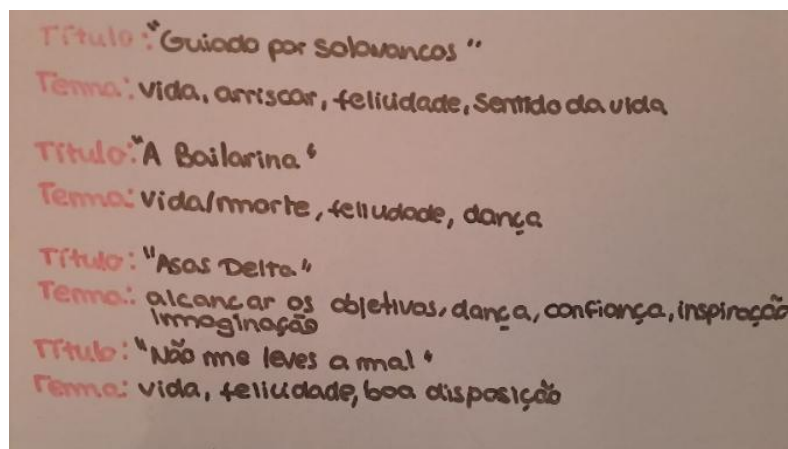 Título: "Guiado por Solavancos"
Tema: vida, arriscar, felicidade, Sentido da vida
Título: "A Bailarina"
Tema: Vida/morte, felicidade, dança
Título: "Asas Delta"
Tema: alcancar os objetivos, dança, confiança, inspiração
immaginação
Título: "Não me leves a mal"
Tema: vida, felicidade, boa disposição